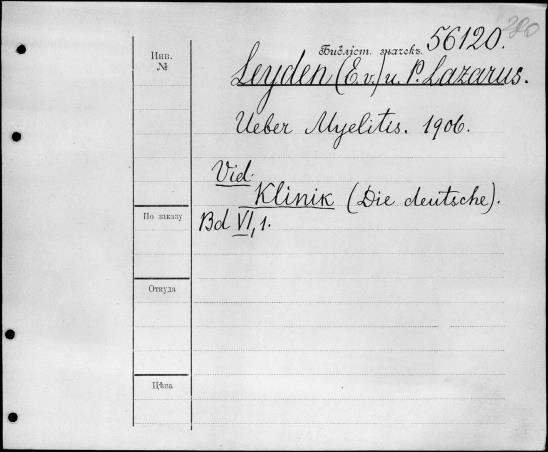 280
Библіот. значекъ. 56120.
Инв.
№
Leyden (E. v.) u. P. Lazarus.
Ueber Myelitis. 1906.
Vid.
Klinik (Die deutsche).
По заказу
Bd VI, 1.
Откуда
Цѣна